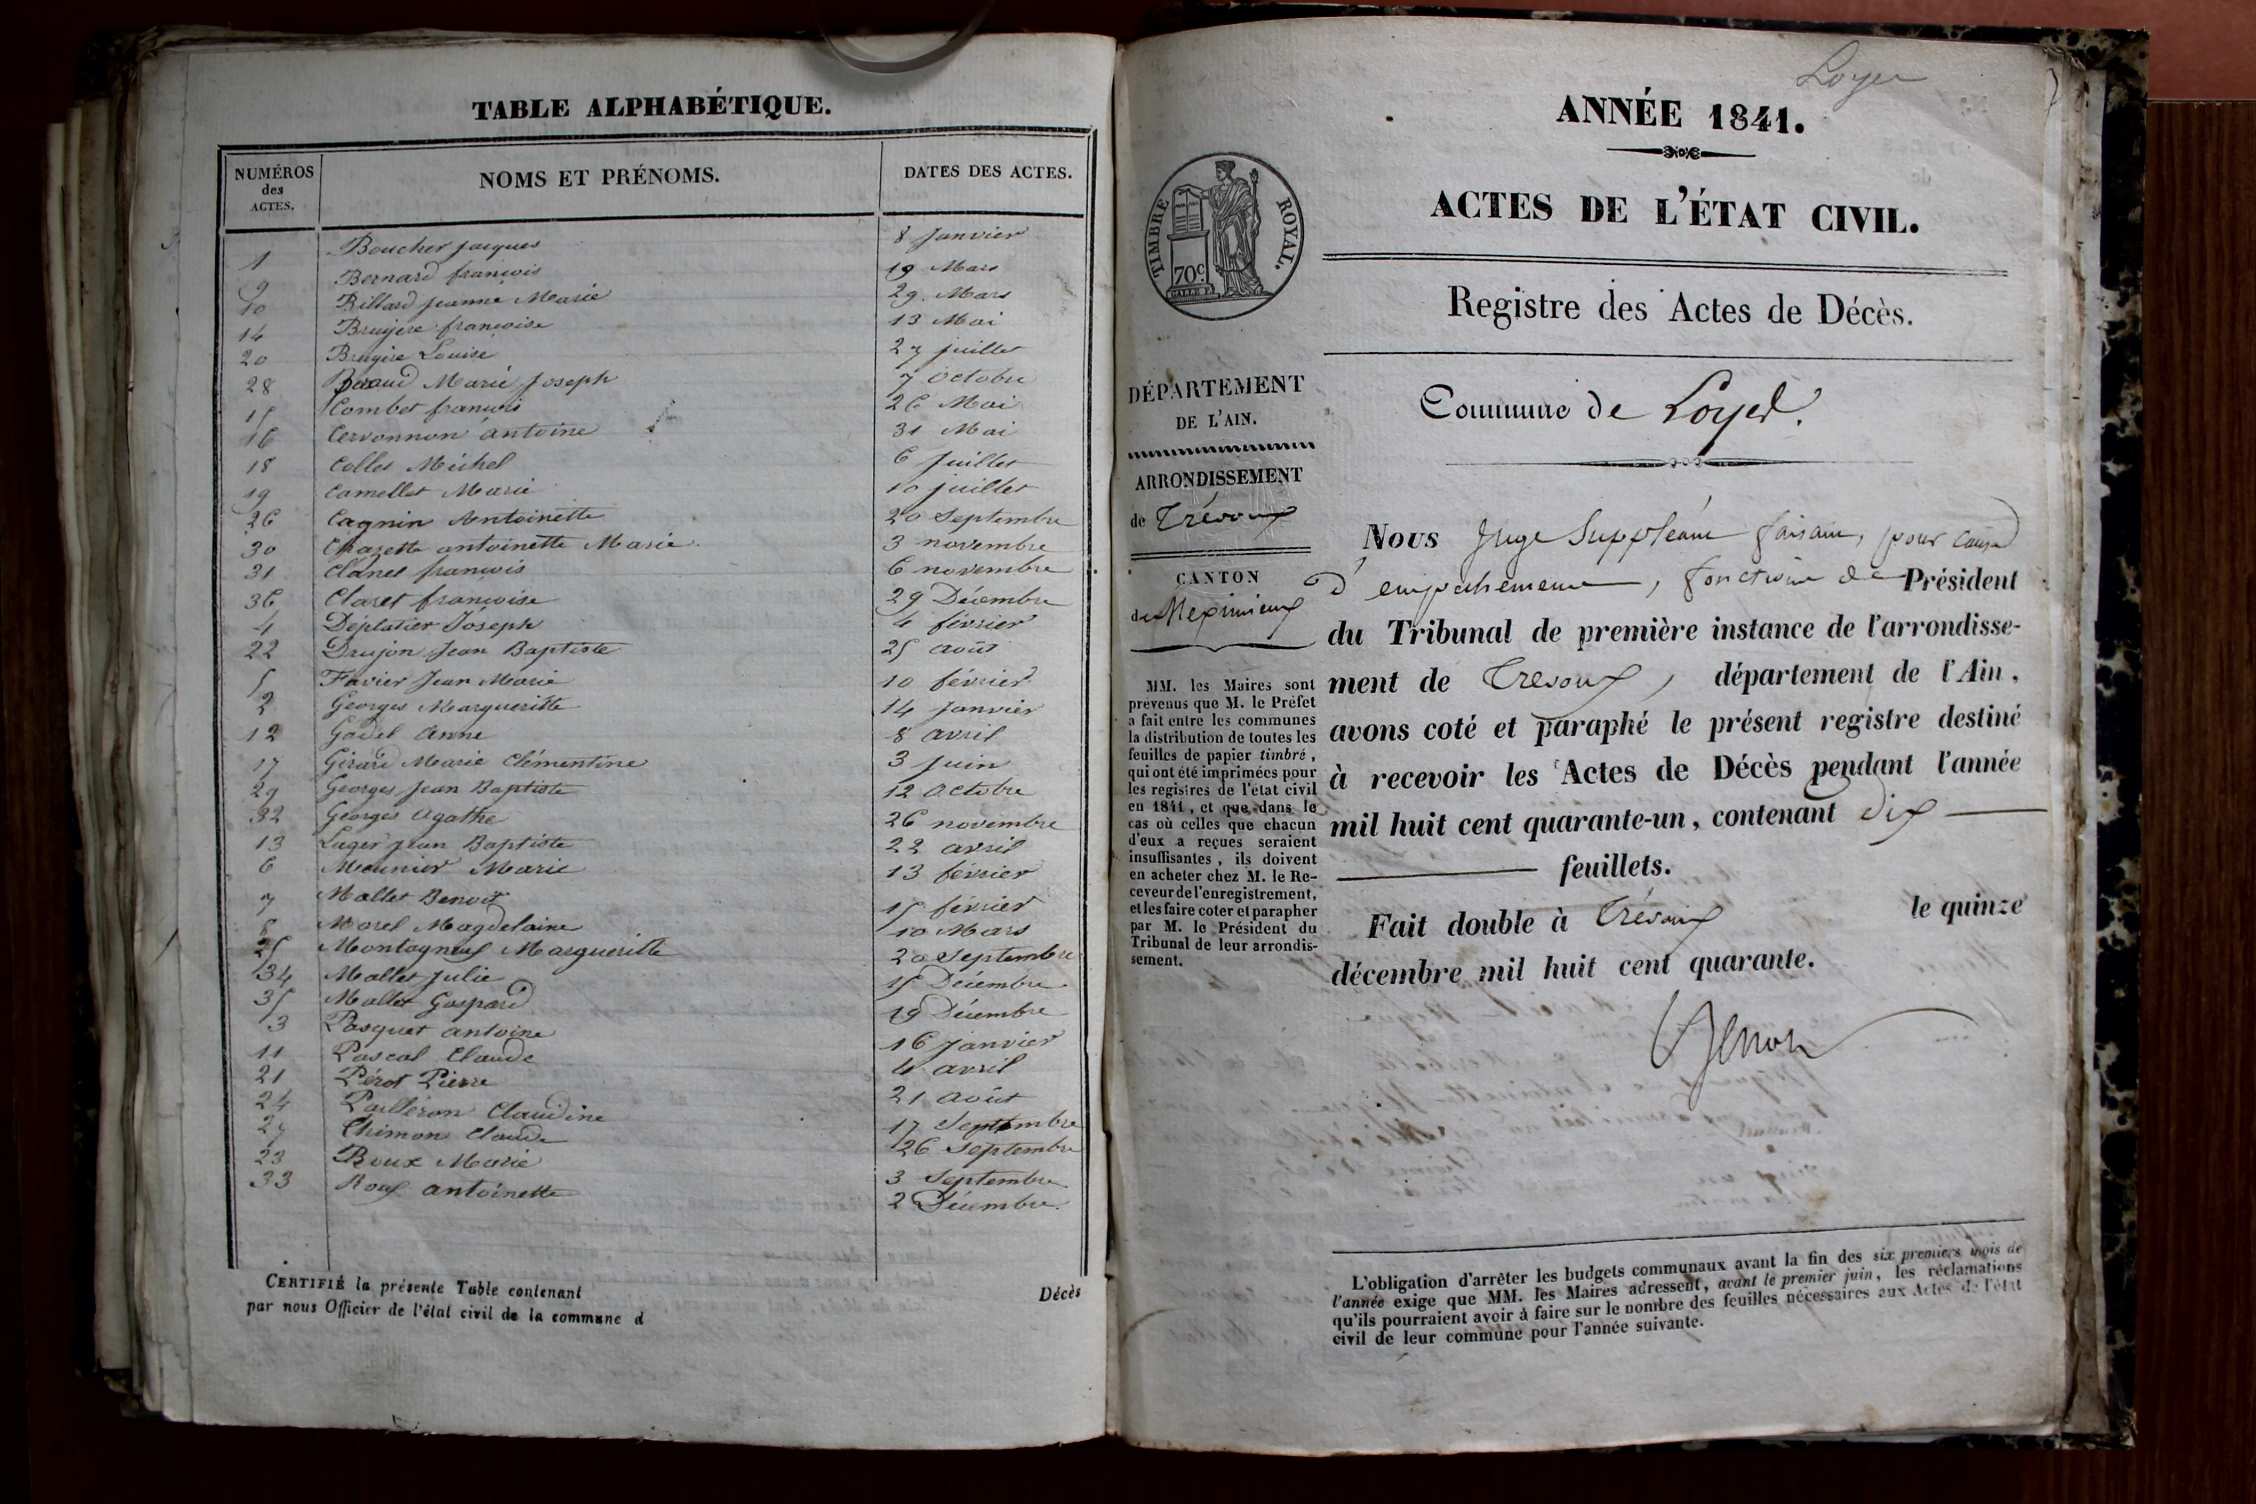 TABLE ALPHABÉTIQUE.
NUMÉROS des ACTES. NOMS ET PRÉNOMS. DATES DES ACTES.
1 Boucher jacques 8 janvier
9 Bernard francois 19 Mars
10 Billard jeanne Marie 29 Mars
14 Bruyere francoise 13 Mai
20 Bruyère Louise 27 juillet
28 Marie joseph 7 octobre
15 Combet francois 26 Mai
16 Cervonnon antoine 31 Mai
18 Collet Michel 6 juillet
19 Camellet Marie 10 juillet
26 Cagnin Antoinette 20 Septembre
30 Chazette antoinette Marie 3 novembre
31 Claret francois 6 novembre
36 Claret francoise 29 Décembre
4 Déplatier Joseph 4 février
22 Drujon Jean Baptiste 25 août
5 Favier Jean Marie 10 février
2 Georges Margueritte 14 janvier
12 Godet Anne 8 avril
17 Girard Marie Clémentine 3 juin
29 Georges Jean Baptiste 12 Octobre
32 Georges Agathe 26 novembre
13 Luger jean Baptiste 22 avril
6 Meunier Marie 13 février
7 Mallet Benoit 15 février
8 Morel Magdelaine 10 Mars
25 Margueritte 20 Septembre
34 Mallet Julie 15 Décembre
35 Mallet Gaspard 19 Décembre
3 Pasquet antoine 16 janvier
11 Pascal Claude 4 avril
21 Pérot Pierre 21 août
24 Pailléron Claudine 17 Septembre
27 Thimon Claude 26 Septembre
23 Roux Marie 3 Septembre
33 Roux antoinette 2 Décembre
CERTIFIÉ la présente Table contenant Décès
par nous Officier de l'état civil de la commune d
Loyer
ANNÉE 1841.
ACTES DE L'ÉTAT CIVIL.
TIMBRE ROYAL.
70 c.
Registre des Actes de Décès.
Commune de Loyes.
DÉPARTEMENT
DE L'AIN.
ARRONDISSEMENT
de Trévoux
CANTON
de Meximieux
MM. les Maires sont
prévenus que M. le Préfet
a fait entre les communes
la distribution de toutes les
feuilles de papier timbré,
qui ont été imprimées pour
les registres de l'état civil
en 1841, et que dans le
cas où celles que chacun
d'eux a reçues seraient
insuffisantes, ils doivent
en acheter chez M. le Re-
ceveur de l'enregistrement,
et les faire coter et parapher
par M. le Président du
Tribunal de leur arrondis-
sement.
Nous Juge Suppléant faisant, pour cause
d'empêchement, fonction de Président
du Tribunal de première instance de l'arrondisse-
ment de Trevoux, département de l'Ain,
avons coté et paraphé le présent registre destiné
à recevoir les Actes de Décès pendant l'année
mil huit cent quarante-un, contenant dix
feuillets.
Fait double à Trévoux le quinze
décembre mil huit cent quarante.
L'obligation d'arrêter les budgets communaux avant la fin des six premiers mois de
l'année exige que MM. les Maires adressent, avant le premier juin, les réclamations
qu'ils pourraient avoir à faire sur le nombre des feuilles nécessaires aux Actes de l'état
civil de leur commune pour l'année suivante.